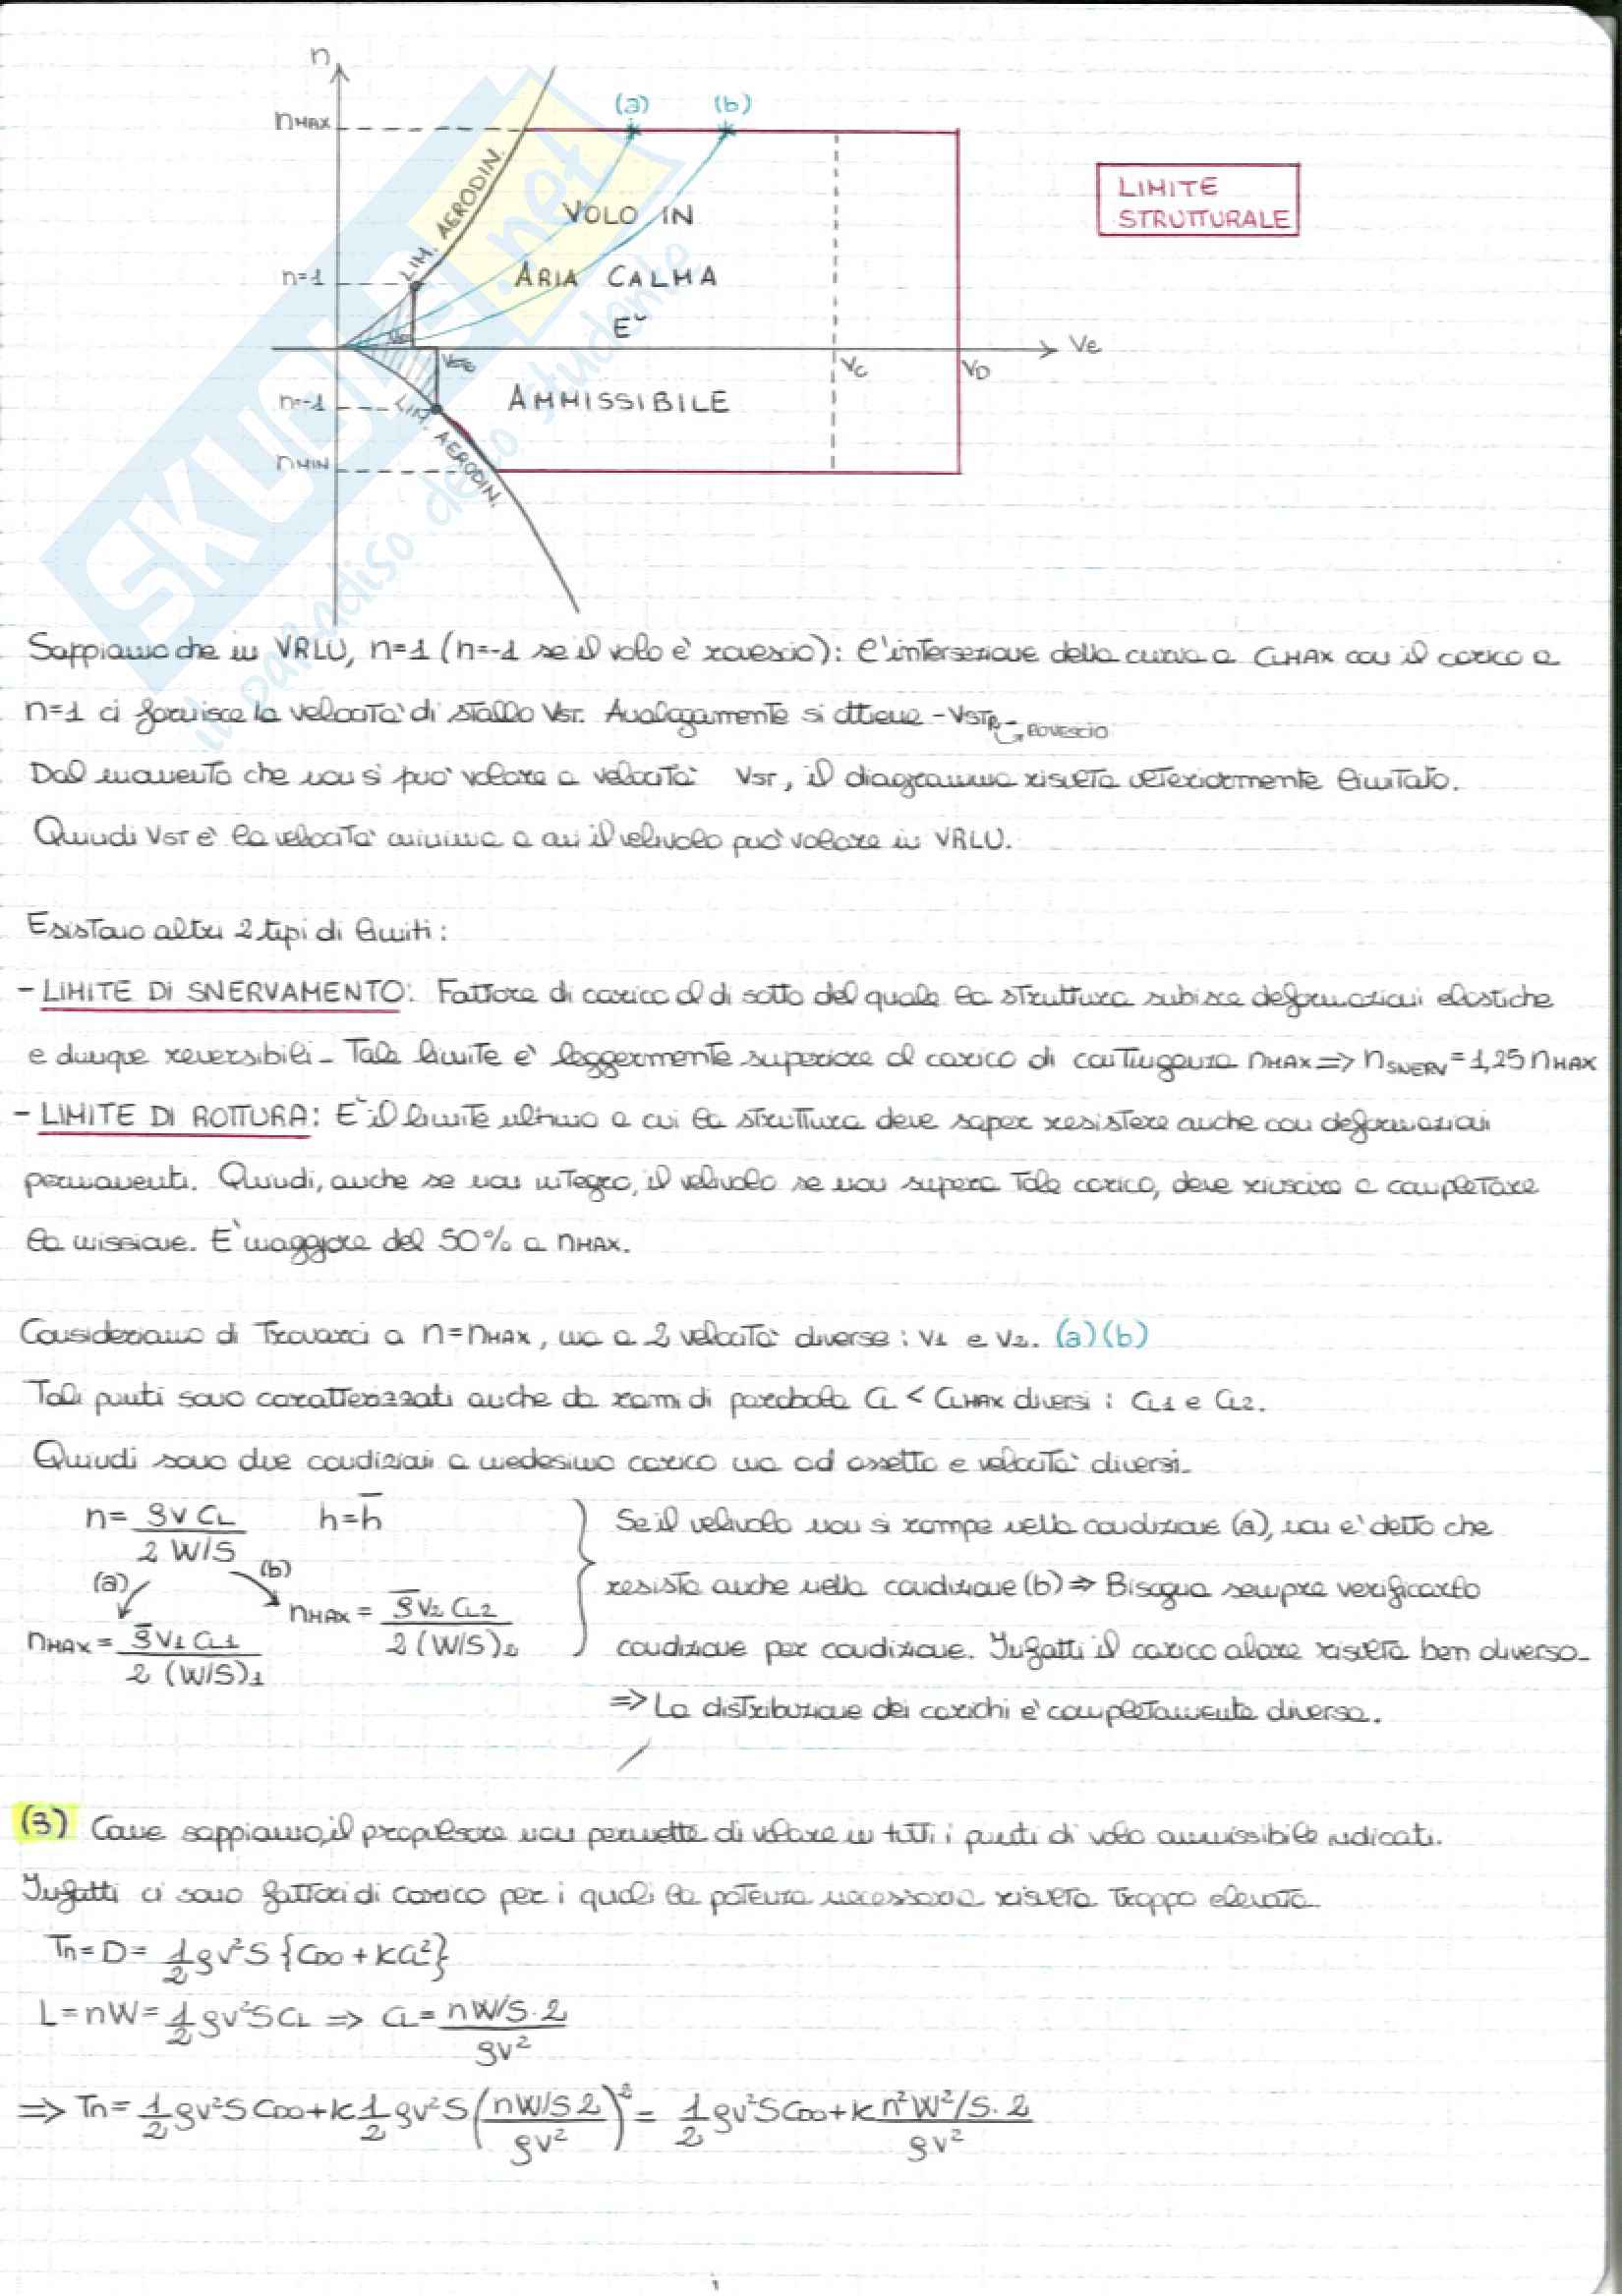 n
(a) (b)
nMAX
LIM. AERODIN.
VOLO IN
LIMITE
STRUTTURALE
n=1
ARIA CALMA
E'
Ve
VC
VD
VSTR
n=-1
LIM. AERODIN.
AMMISSIBILE
nMIN
SKUOLA.net
il paradiso dello studente
Sappiamo che in VRLU, n=1 (n=-1 se il volo è rovescio): l'intersezione della curva a CLMAX con il carico a
n=1 ci fornisce la velocità di stallo VST. Analogamente si ottiene -VSTR- → ROVESCIO
Dal momento che non si può volare a velocità VST, il diagramma risulta ulteriormente limitato.
Quindi VST è la velocità minima a cui il velivolo può volare in VRLU.
Esistono altri 2 tipi di limiti:
- LIMITE DI SNERVAMENTO: Fattore di carico al di sotto del quale la struttura subisce deformazioni elastiche
e dunque reversibili- Tale limite è leggermente superiore al carico di contingenza nMAX => nSNERV = 1,25 nMAX
- LIMITE DI ROTTURA: E' il limite ultimo a cui la struttura deve saper resistere anche con deformazioni
permanenti. Quindi, anche se non integro, il velivolo se non supera tale carico, deve riuscire a completare
la missione. E' maggiore del 50% a nMAX.
Consideriamo di trovarci a n=nMAX, ma a 2 velocità diverse: V1 e V2. (a)(b)
Tali punti sono caratterizzati anche da rami di parabola CL < CLMAX diversi: CL1 e CL2.
Quindi sono due condizioni a medesimo carico ma ad assetto e velocità diversi-
n = ρV CL / 2 W/S h = h̄
(a) (b)
nMAX = ρ̄ V1 CL1 / 2 (W/S)1
nMAX = ρ̄ V2 CL2 / 2 (W/S)2
Se il velivolo non si rompe nella condizione (a), non è detto che
resista anche nella condizione (b) => Bisogna sempre verificarlo
condizione per condizione. Infatti il carico alare risulta ben diverso-
=> La distribuzione dei carichi è completamente diversa.
(3) Come sappiamo, il propulsore non permette di volare in tutti i punti di volo ammissibile indicati.
Infatti ci sono fattori di carico per i quali la potenza necessaria risulta troppo elevata.
Tn = D = 1/2 ρV²S {CD0 + KCL²}
L = nW = 1/2 ρV²SCL => CL = nW/S·2 / ρV²
=> Tn = 1/2 ρV²SCD0 + K 1/2 ρV²S (nW/S 2 / ρV²)² = 1/2 ρV²SCD0 + K n²W²/S·2 / ρV²